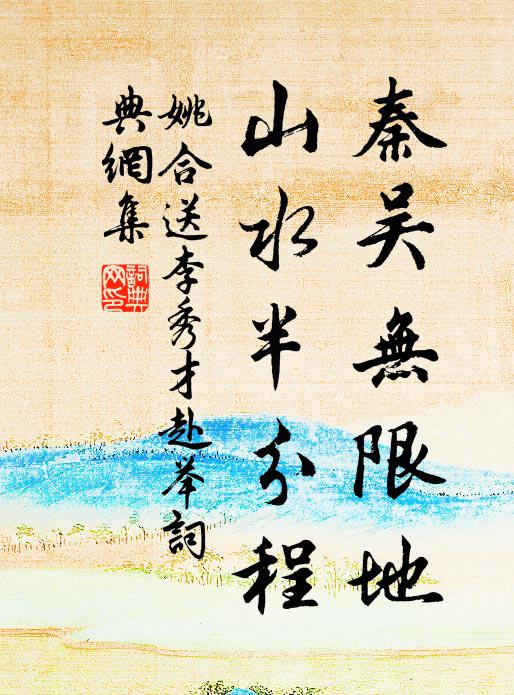 秦吴無限地
山水半分程
姚合送李秀才赴举詞
典網集
詞典
网印